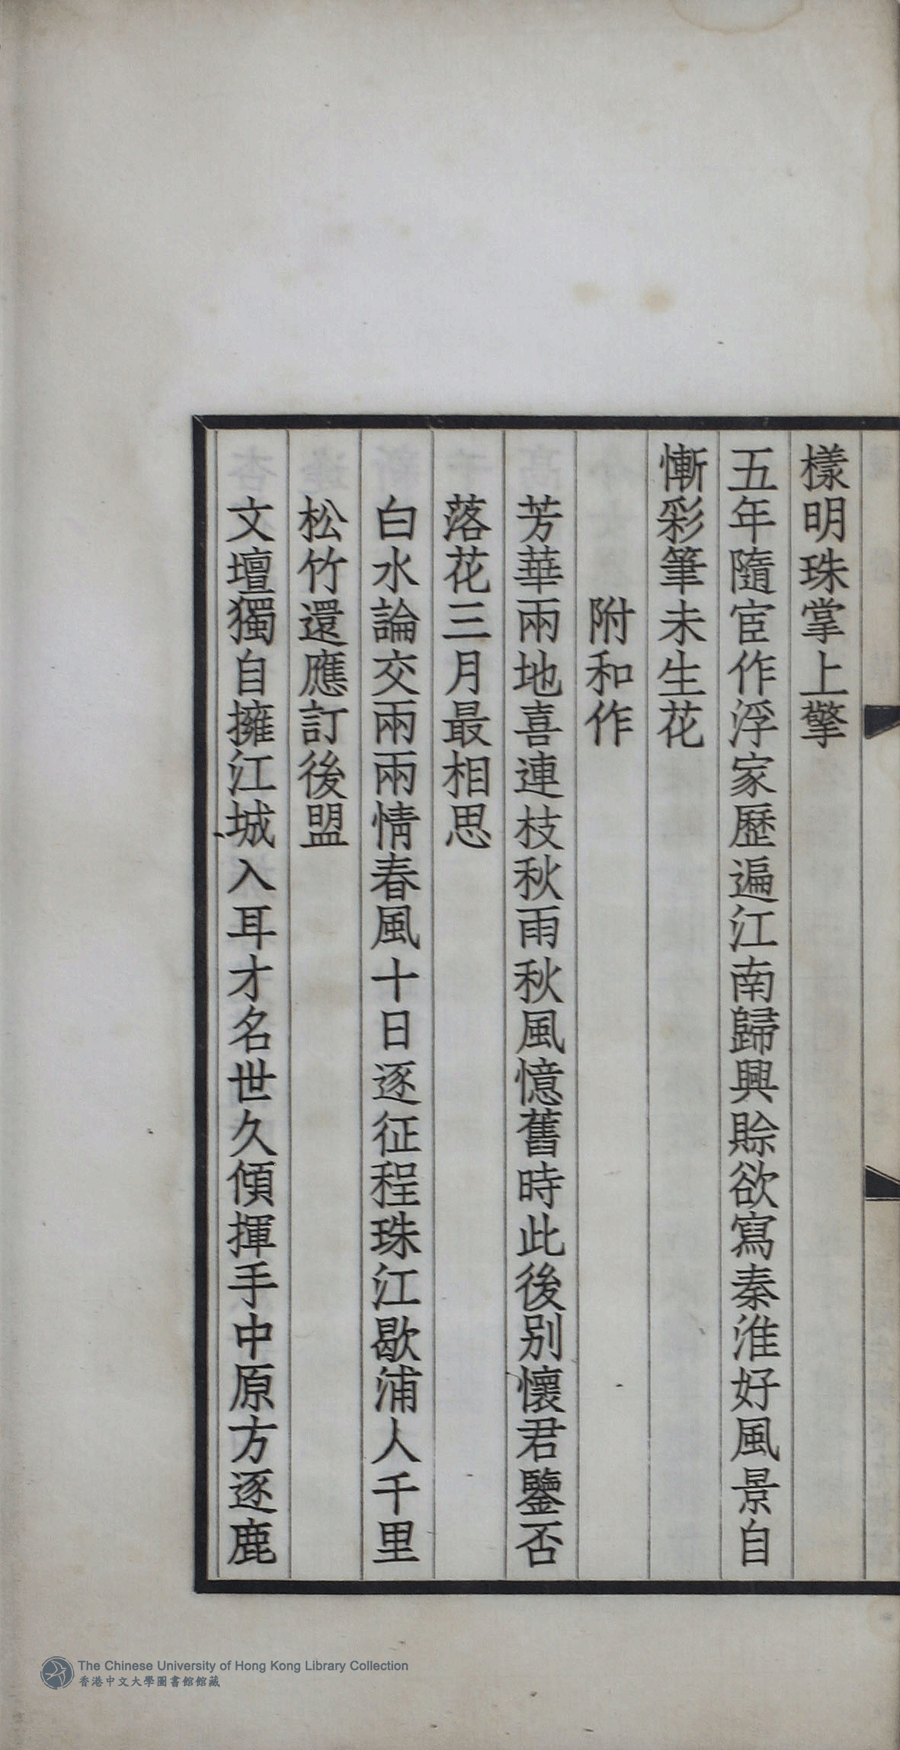 樣明珠掌上擎
五年隨宦作浮家歷遍江南歸興賒欲寫秦淮好風景自
慚彩筆未生花
附和作
芳華兩地喜連枝秋雨秋風憶舊時此後別懷君鑒否
落花三月最相思
白水論交兩兩情春風十日逐征程珠江歇浦人千里
松竹還應訂後盟
文壇獨自擁江城入耳才名世久傾揮手中原方逐鹿
The Chinese University of Hong Kong Library Collection
香港中文大學圖書館館藏